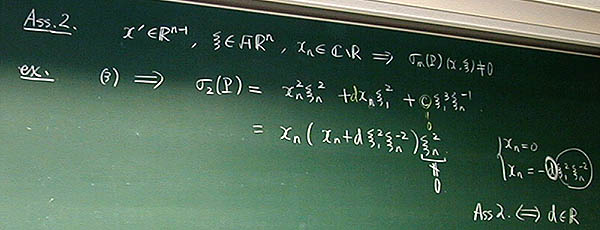 Ass. 2. x' ∈ ℝⁿ⁻¹, ξ ∈ √-1ℝⁿ, xₙ ∈ ℂ\ℝ ⟹ σₘ(P)(x,ξ) ≠ 0
ex. (3) ⟹ σ₂(P) = xₙ²ξₙ² + dxₙξ₁² + cξ₁³ξₙ⁻¹
0
= xₙ(xₙ + dξ₁²ξₙ⁻²)ξₙ²
∦
0
{ xₙ = 0
xₙ = -dξ₁²ξₙ⁻²
Ass 2. ⟺ d ∈ ℝ